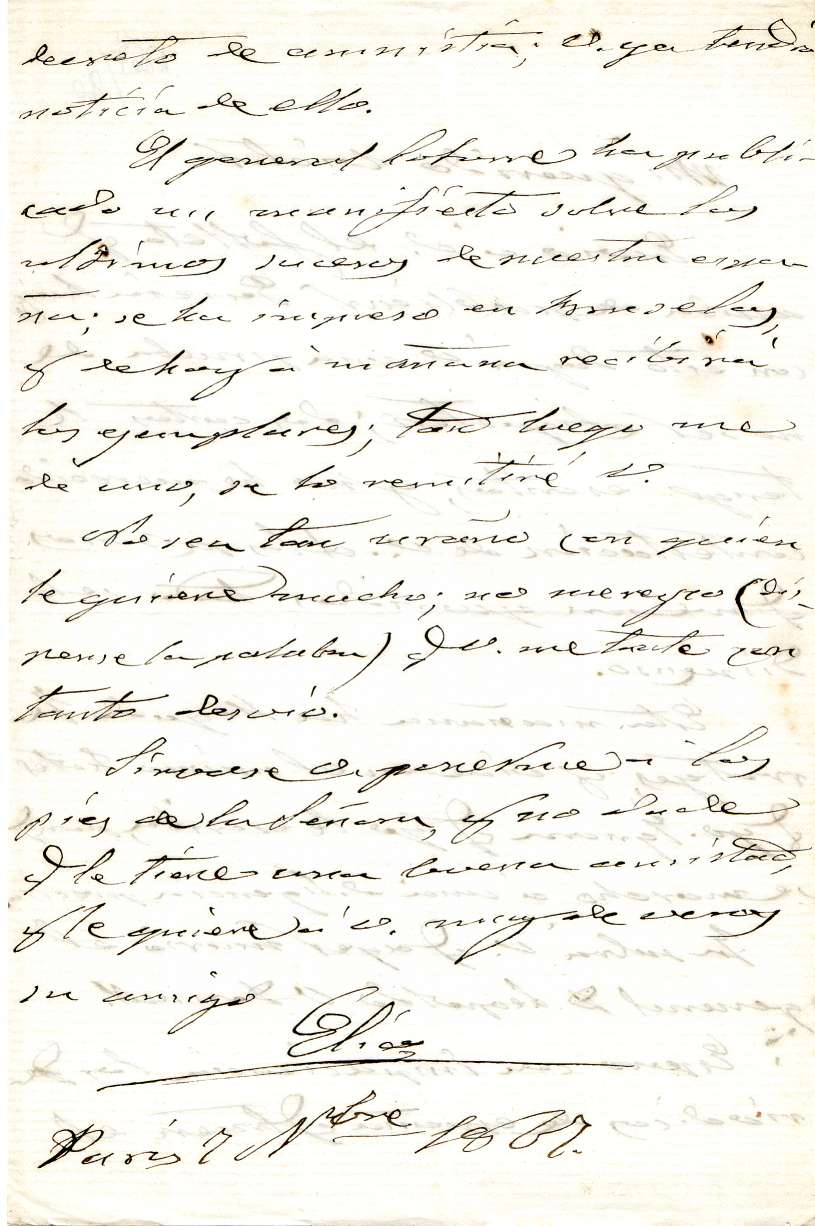 decreto de amnistía; V. ya tendrá
noticia de ello.
El general Latorre ha publi-
cado un manifiesto sobre los
ultimos sucesos de nuestra espa-
ña; se ha impreso en Bruselas,
y de hoy á mañana recibirá
los ejemplares; tan luego me
dé uno, se lo remitiré á V.
No sea tan uraño con quien
le quiere mucho; no merezco (dis-
pense la palabra) q V. me trate con
tanto desvío.
Sirvase V. ponerme á los
pies de la Señora, y no dude
q le tiene una buena amistad,
y le quiere á V. muy de veras
su amigo
Elías
París 7 Nbre 1867.